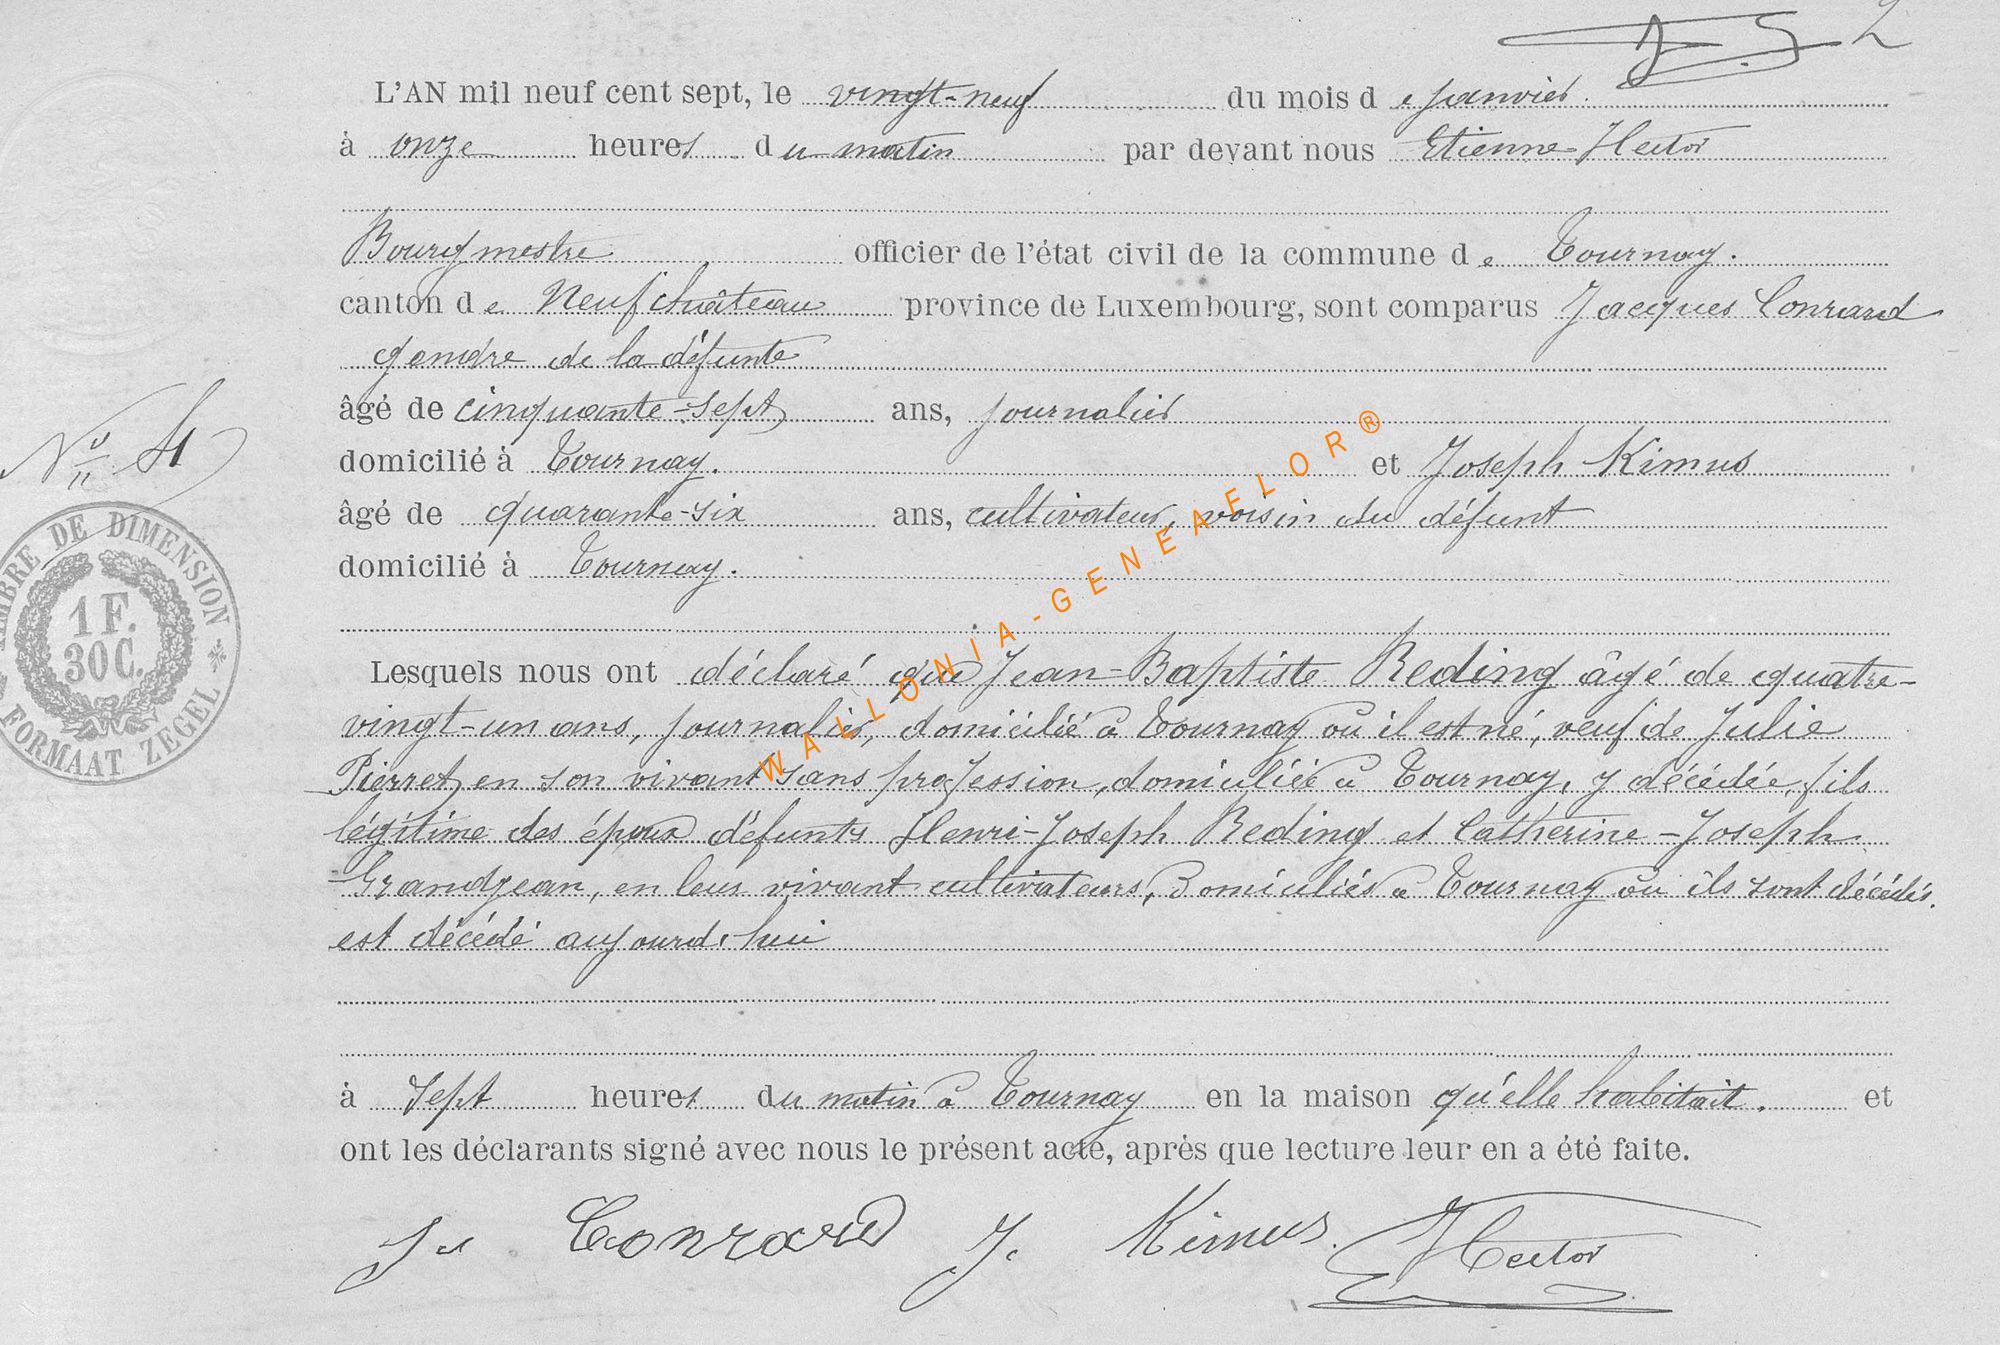 2
L'AN mil neuf cent sept, le vingt-neuf du mois de janvier.
à onze heures du matin par devant nous Etienne Hector
Bourgmestre officier de l'état civil de la commune de Tournay.
canton de Neufchâteau province de Luxembourg, sont comparus Jacques Conrard
gendre de la défunte
âgé de cinquante-sept ans, journalier
domicilié à Tournay. et Joseph Kimus
âgé de quarante-six ans, cultivateur, voisin du défunt
domicilié à Tournay.
Lesquels nous ont déclaré que Jean-Baptiste Reding âgé de quatre-
vingt-un ans, journalier, domicilié à Tournay où il est né, veuf de Julie
Pierret en son vivant sans profession, domiciliée à Tournay, y décédée, fils
légitime des époux défunts Henri-Joseph Reding et Catherine-Joseph
Grandjean, en leur vivant cultivateurs, domiciliés à Tournay où ils sont décédés.
est décédé aujourd'hui
à sept heures du matin à Tournay en la maison qu'elle habitait. et
ont les déclarants signé avec nous le présent acte, après que lecture leur en a été faite.
Conrard J. Kimus. Hector
N° 4
TIMBRE DE DIMENSION
1 F.
30 C.
FORMAAT ZEGEL
WALLONIA-GENEAELOR®